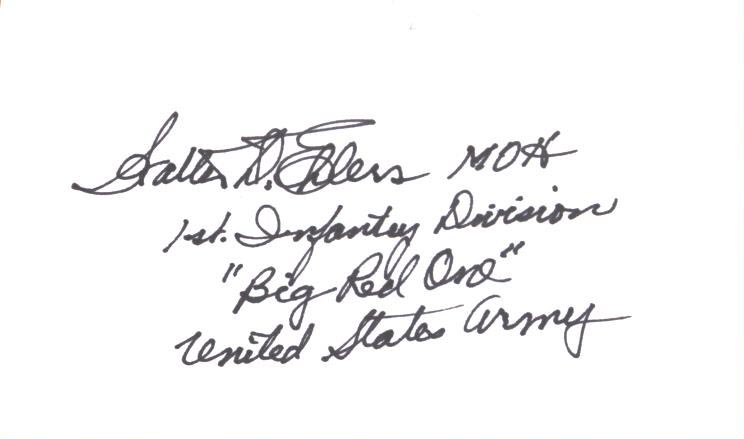 Walter D. Ehlers MOH
1st. Infantry Division
"Big Red One"
United States Army